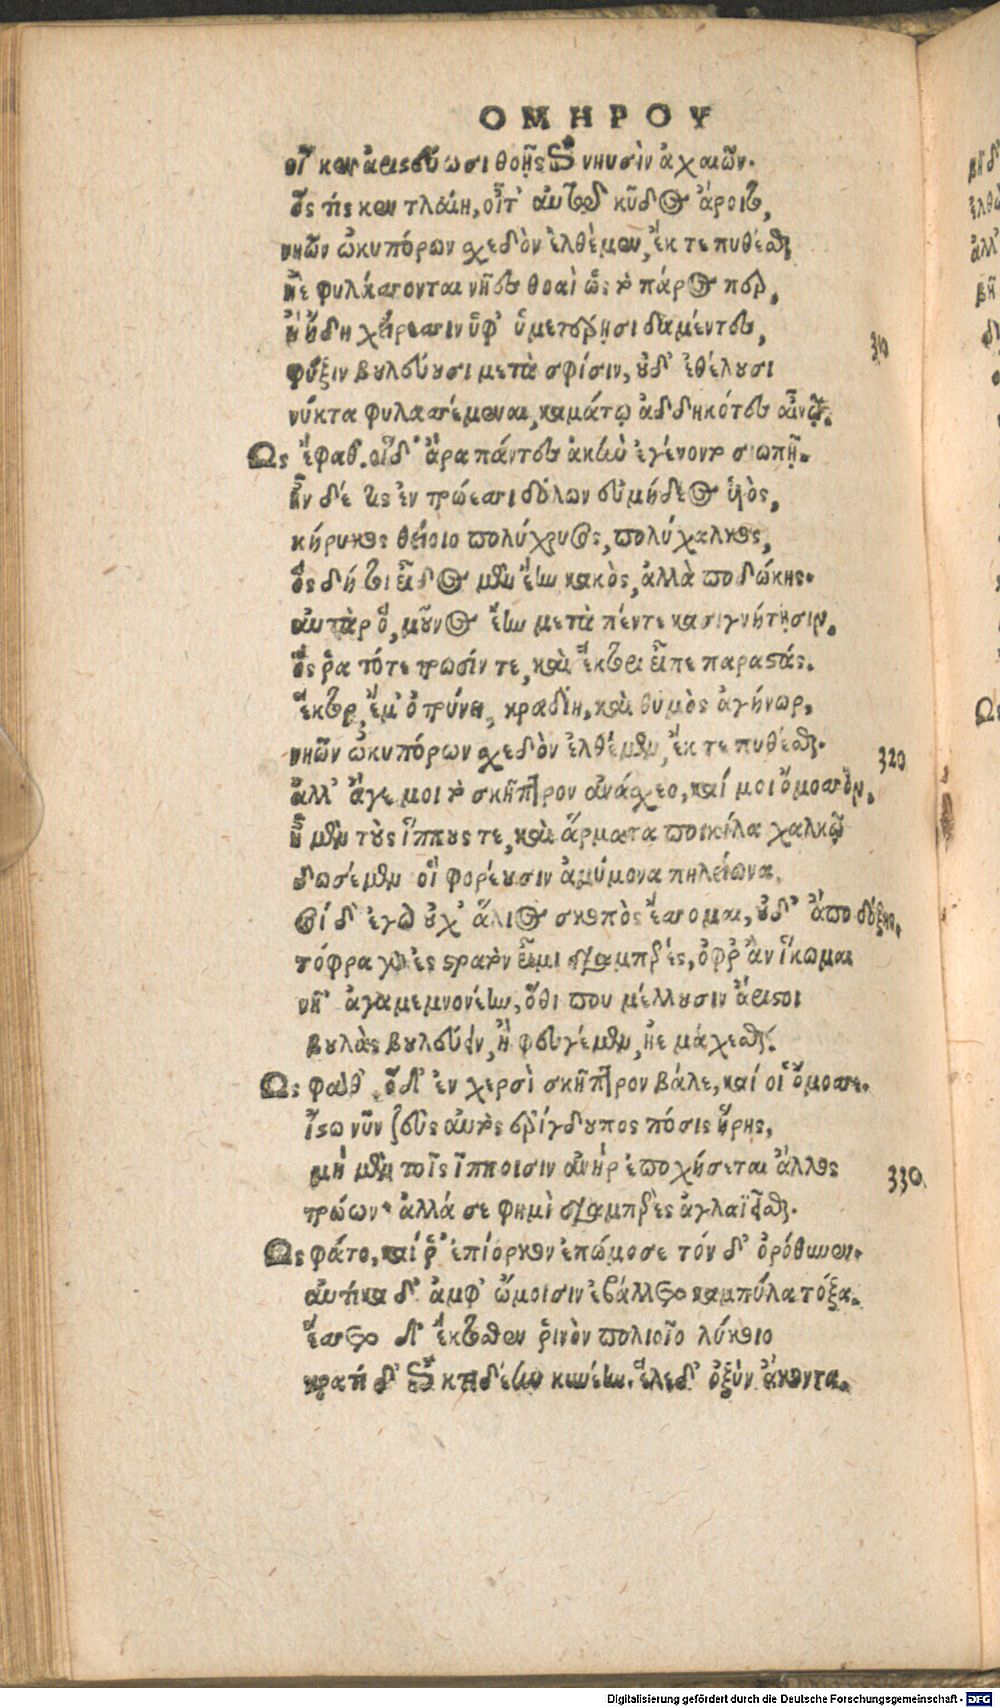 ΟΜΗΡΟΥ
οἵ κεν ἀριστεύωσι θοῇς ἐπὶ νηυσὶν ἀχαιῶν.
ὅς τίς κεν τλαίη, οἷτ' αὐτῷ κῦδος ἄροιτο,
νηῶν ὠκυπόρων σχεδὸν ἐλθέμεν, ἔκ τε πυθέσθαι
ἠὲ φυλάσσονται νῆες θοαὶ ὡς τὸ πάρος περ,
ἢ ἤδη χείρεσσιν ὑφ' ὑμετέρῃσι δαμέντες,
φύξιν βουλεύουσι μετὰ σφίσιν, οὐδ' ἐθέλουσι
310
νύκτα φυλασσέμεναι, καμάτῳ ἀδδηκότες αἰνῷ.
Ως ἔφαθ'. οἱ δ' ἄρα πάντες ἀκὴν ἐγένοντο σιωπῇ.
ἦν δέ τις ἐν τρώεσσι δόλων εὐμήδεος υἱὸς,
κήρυκος θείοιο πολύχρυσος, πολύχαλκος,
ὃς δή τοι εἶδος μὲν ἔην κακὸς, ἀλλὰ ποδώκης.
αὐτὰρ ὃ, μοῦνος ἔην μετὰ πέντε κασιγνήτῃσιν.
ὅς ῥα τότε τρωσίν τε, καὶ ἕκτορι εἶπε παραστάς.
ἕκτορ, ἔμ' ὀτρύνει, κραδίη, καὶ θυμὸς ἀγήνωρ,
νηῶν ὠκυπόρων σχεδὸν ἐλθέμεν, ἔκ τε πυθέσθαι.
320
ἀλλ' ἄγε μοι τὸ σκῆπτρον ἀνάσχεο, καί μοι ὄμοσσον,
ἦ μὲν τοὺς ἵππους τε, καὶ ἅρματα ποικίλα χαλκῷ
δωσέμεν οἳ φορέουσιν ἀμύμονα πηλείωνα.
σοὶ δ' ἐγὼ οὐχ' ἅλιος σκοπὸς ἔσσομαι, οὐδ' ἄπο δόξης.
τόφρα γὰρ ἐς στρατὸν εἶμι διαμπερές, ὄφρ' ἂν ἵκωμαι
νῆ' ἀγαμεμνονέην, ὅθι που μέλλουσιν ἄριστοι
βουλὰς βουλεύειν, ἢ φευγέμεν, ἠὲ μάχεσθαι.
Ως φάθ'. ὃ δ' ἐν χερσὶ σκῆπτρον βάλε, καί οἱ ὄμοσσε.
ἴστω νῦν ζεὺς αὐτὸς ἐρίγδουπος πόσις ἥρης,
μὴ μὲν τοῖς ἵπποισιν ἀνὴρ ἐποχήσεται ἄλλος
330
τρώων· ἀλλά σε φημὶ διαμπερὲς ἀγλαϊεῖσθαι.
Ως φάτο, καί ῥ' ἐπίορκον ἐπώμοσε τόν δ' ὀρόθυνεν.
αὐτίκα δ' ἀμφ' ὤμοισιν ἐβάλλετο καμπύλα τόξα.
ἕσσατο δ' ἔκτοσθεν ῥινὸν πολιοῖο λύκοιο
κρατὶ δ' ἐπὶ κτιδέην κυνέην. ἕλε δ' ὀξὺν ἄκοντα.
Digitalisierung gefördert durch die Deutsche Forschungsgemeinschaft - DFG